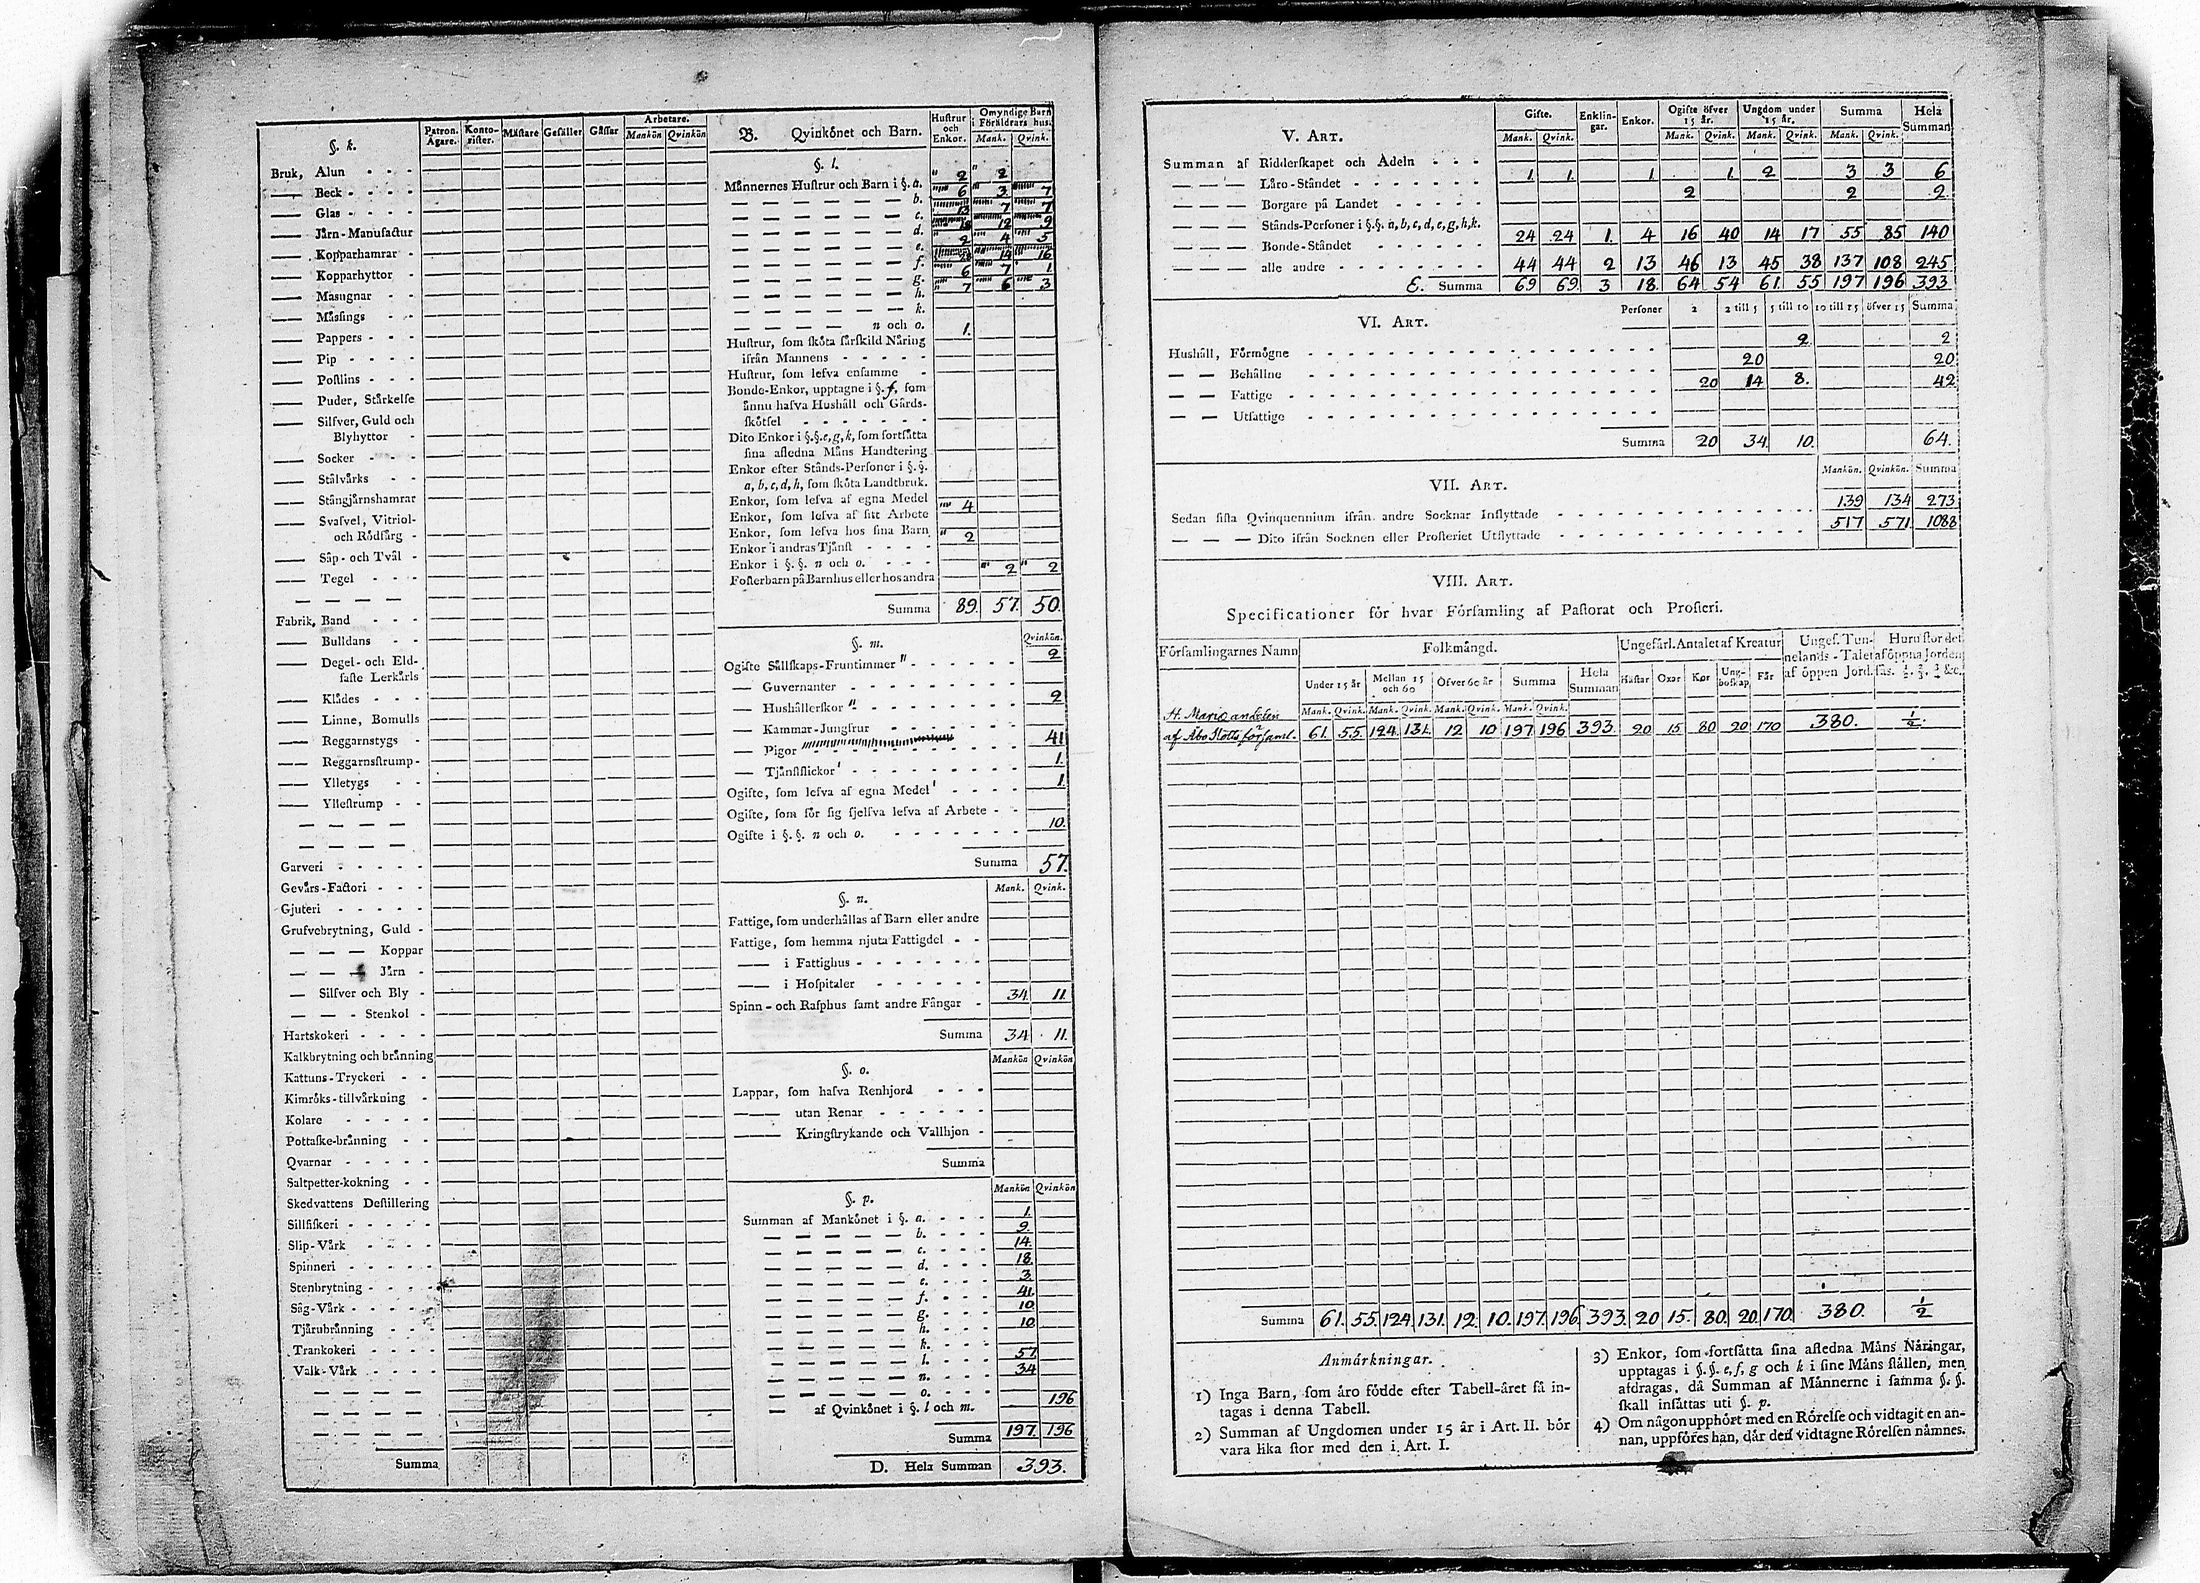 §. k.
Patron. Ågare.
Konto- rister.
Måstare
Gesäller
Gåssar
Arbetare.
Mankön Qvinkön
Bruk, Alun - - -
—— Beck - - - -
—— Glas - - - -
—— Jårn-Manufactur
—— Kopparhamrar -
—— Kopparhyttor -
—— Masugnar - -
—— Måssings - -
—— Pappers - - -
—— Pip - - - -
—— Postlins - - -
—— Puder, Stårkelse
—— Silfver, Guld och
Blyhyttor -
—— Socker - - -
—— Stålvårks - -
—— Stångjårnshamrar
—— Svafvel, Vitriol-
och Rödfårg -
—— Såp- och Tvål -
—— Tegel - - -
— — — —
Fabrik, Band - - -
—— Bulldans - -
—— Degel- och Eld-
faste Lerkårls
—— Klådes - - -
—— Linne, Bomulls
—— Reggarnstygs -
—— Reggarnsstrump-
—— Ylletygs - -
—— Yllestrump - -
— — — —
— — — —
Garveri - - - - -
Gevårs-Factori - - -
Gjuteri - - - - -
Grufvebrytning, Guld -
— — — Koppar
— — — Jårn -
— Silfver och Bly -
— — - Stenkol -
Hartskokeri - - - -
Kalkbrytning och brånning
Kattuns-Tryckeri - -
Kimröks-tillvårkning -
Kolare - - - - -
Pottaske-brånning - -
Qvarnar - - - - -
Saltpetter-kokning - -
Skedvattens Destillering
Sillfiskeri - - - - -
Slip-Vårk - - - -
Spinneri - - - - -
Stenbrytning - - - -
Såg-Vårk - - - - -
Tjårubrånning - - -
Trankokeri - - - -
Valk-Vårk - - - -
— — — —
— — — —
— — — —
Summa
B. Qvinkönet och Barn.
Hustrur och Enkor.
Omyndige Barn i Föråldrars hus.
Mank. Qvink.
§. l.
Månnernes Hustrur och Barn i §. a. 2 2
— — — — — — b. 6 3 7
— — — — — — c. 13 7 7
— — — — — — d. 18 12 9
— — — — — — e. 2 4 5
— — — — — — f. 28 14 16
— — — — — — g. 6 7 1
— — — — — — h. 7 6 3
— — — — — — k.
— — — — n och o. 1.
Hustrur, som sköta sårskild Nåring
ifrån Mannens - - - - -
Hustrur, som lefva ensamme -
Bonde-Enkor, upptagne i §. f, som
ånnu hafva Hushåll och Gårds-
skötsel - - - - - -
Dito Enkor i §.§. e, g, k, som fortsåtta
sina afledna Måns Handtering
Enkor efter Stånds-Personer i §.§.
a, b, c, d, h, som sköta Landtbruk.
Enkor, som lefva af egna Medel 4
Enkor, som lefva af sitt Arbete
Enkor, som lefva hos sina Barn 2
Enkor i andras Tjånst - - - -
Enkor i §. §. n och o. - - -
Fosterbarn på Barnhus eller hos andra 2 2
Summa 89. 57. 50.
§. m.
Qvinkön.
Ogifte Sållskaps-Fruntimmer " - - - - - - 2
— Guvernanter - - - - - - - -
— Hushållerskor " - - - - - - - 2
— Kammar-Jungfrur - - - -
— Pigor 41
— Tjånstflickor ' - - - - - - - 1.
Ogifte, som lefva af egna Medel ' - - - - 1.
Ogifte, som för sig sjelfva lefva af Arbete - -
Ogifte i §. §. n och o. - - - - - - - 10.
Summa 57.
§. n.
Mank. Qvink.
Fattige, som underhållas af Barn eller andre
Fattige, som hemma njuta Fattigdel - -
—— i Fattighus - - - - - - -
—— i Hospitaler - - - - - -
Spinn- och Rasphus samt andre Fångar - 34 11
Summa 34 11.
§. o.
Mankön Qvinkön
Lappar, som hafva Renhjord - - -
—— utan Renar - - - - - -
—— Kringstrykande och Vallhjon -
Summa
§. p.
Mankön Qvinkön
Summan af Mankönet i §. a. - - - 1.
— — — — — b. - - - 9.
— — — — — c. - - - 14.
— — — — — d. - - - 18.
— — — — — e. - - - 3.
— — — — — f. - - - 41.
— — — — — g. - - - 10.
— — — — — h. - - - 10.
— — — — — k. - - -
— — — — — l. - - - 57.
— — — — — n. - - - 34
— — — — — o. - - -
— af Qvinkönet i §. l och m. 196
Summa 197. 196
D. Hela Summan 393.
V. Art.
Gifte. Enklin- gar. Enkor. Ogifte öfver 15 år. Ungdom under 15 år. Summa Hela Summan
Mank. Qvink. Mank. Qvink. Mank. Qvink. Mank. Qvink.
Summan af Ridderskapet och Adeln - - - 1. 1. 1. 1. 2 3 3 6
— — — Låro-Ståndet - - - - - - - 2 2 2.
— — — Borgare på Landet - - - - - -
— — — Stånds-Personer i §.§. a, b, c, d, e, g, h, k. 24 24 1. 4 16 40 14 17 55 85 140
— — — Bonde-Ståndet - - - - - -
— — — alle andre - - - - - - - - 44 44 2 13 46 13 45 38 137 108 245
E. Summa 69 69 3 18. 64 54 61. 55 197 196 393
VI. Art.
Personer 2 2 till 5 5 till 10 10 till 15 öfver 15 Summa
Hushåll, Förmögne - - - - - - 2 2
— — Behållne - - - - - - 20 20
— — Fattige - - - - - - 20 14 8. 42
— — Utfattige - - - - - -
Summa 20 34. 10. 64.
VII. Art.
Mankön. Qvinkön. Summa
Sedan sista Qvinquennium ifrån andre Socknar Inflyttade - - - 139 134 273
— — — Dito ifrån Socknen eller Prosteriet Utflyttade - - - 517 571 1088
VIII. Art.
Specificationer för hvar Församling af Pastorat och Prosteri.
Församlingarnes Namn
Folkmångd.
Ungefårl. Antalet af Kreatur
Ungef. Tun- nelands-Talet af öppen Jord.
Huru stor del af öppna Jorden sås. ½. ⅔. ¾ &c.
Under 15 år Mellan 15 och 60 Öfver 60 år Summa Hela Summan Håstar Oxar Kor Ung- boskap Får
Mank. Qvink. Mank. Qvink. Mank. Qvink. Mank. Qvink.
St. Marie andelen
af Åbo Slotts församl. 61. 55. 124. 131. 12 10 197 196 393. 20 15 80 20 170 380. ½.
Summa 61. 55. 124. 131. 12. 10. 197. 196. 393. 20 15. 80. 20. 170. 380. ½
Anmårkningar.
1) Inga Barn, som åro födde efter Tabell-året få in-
tagas i denna Tabell.
2) Summan af Ungdomen under 15 år i Art. II. bör
vara lika stor med den i Art. I.
3) Enkor, som fortsåtta sina afledna Måns Nåringar,
upptagas i §. §. e, f, g och k i sine Måns stållen, men
afdragas, då Summan af Månnerne i samma §. §.
skall insåttas uti §. p.
4) Om någon upphört med en Rörelse och vidtagit en an-
nan, uppföres han, dår den vidtagne Rörelsen nåmnes.